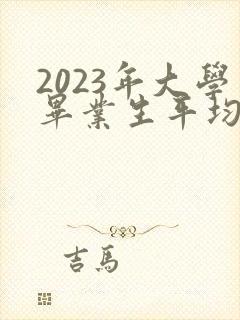 2023年大學
畢業生平均
吉馬